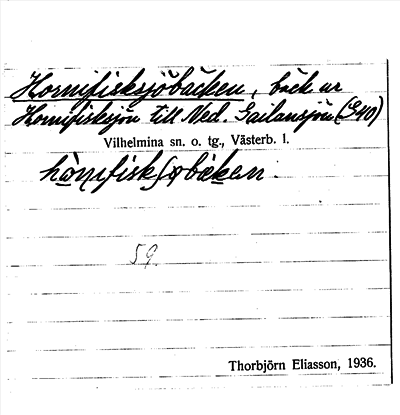 Hornifisksjöbäcken, bäck ur
Hornifisksjön till Ned. Gailansjön (S40)
Vilhelmina sn. o. tg., Västerb. l.
59
Thorbjörn Eliasson, 1936.